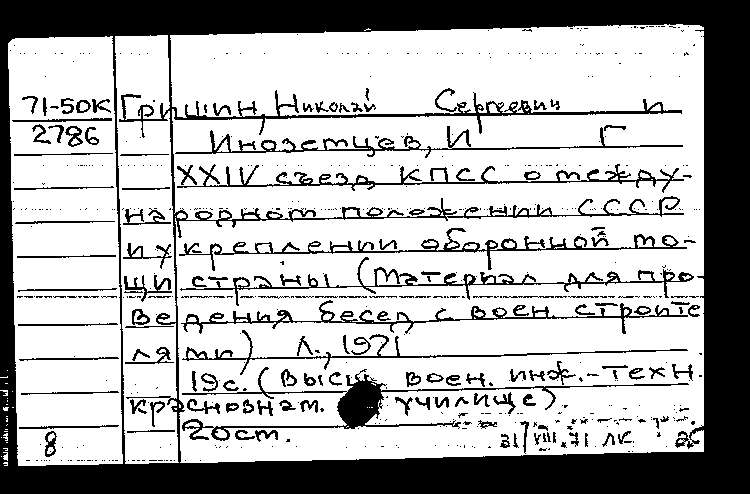 71-50К Гришин, Николай Сергеевич и
2786 Иноземцев, И Г
XXIV съезд КПСС о между-
народном положении СССР
и укреплении оборонной мо-
щи страны. (Материал для про-
ведения бесед с воен. строите
лями) Л., 1971
19с. (Высш воен. инж.-техн.
краснознам. училище).
8 20ст. 31/VIII.71 ЛК